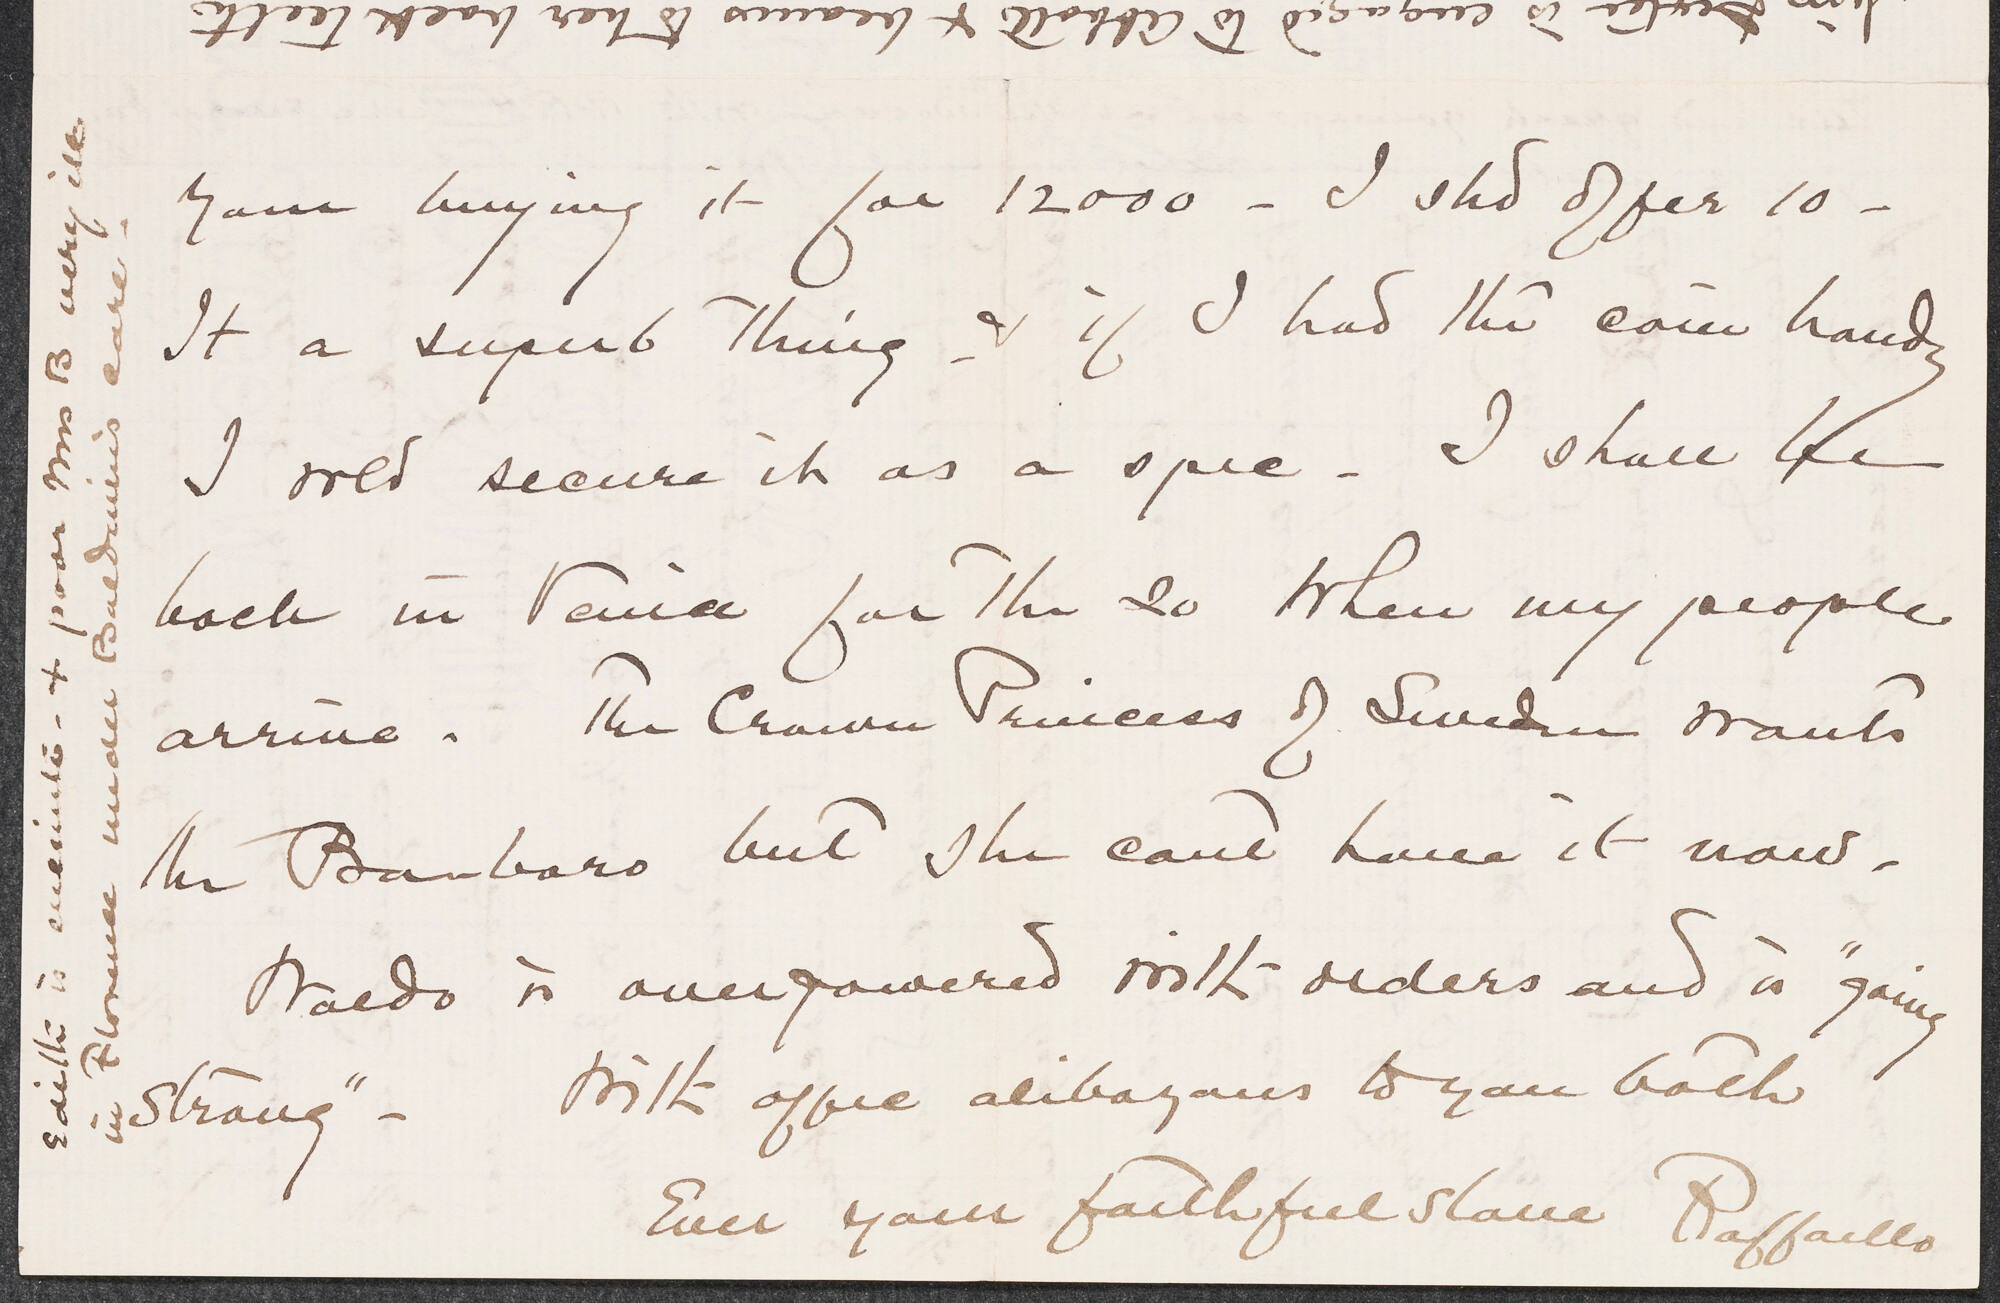 your buying it for 12000 - I shd offer 10 -
It a superb thing - & if I had the coin handy
I wld secure it as a spec - I shall be
back in Venice for the 20 when my people
arrive . The Crown Princess of Sweden wants
the Barbaro but she cant have it now -
Waldo is overpowered with orders and is "going
strong" - With affec to you both
Ever your faithful slave Raffaello
Edith is - & poor Mrs B very ill
in Florence under Baldwin's care -
Jim is engaged to Abbott & beams to her back teeth